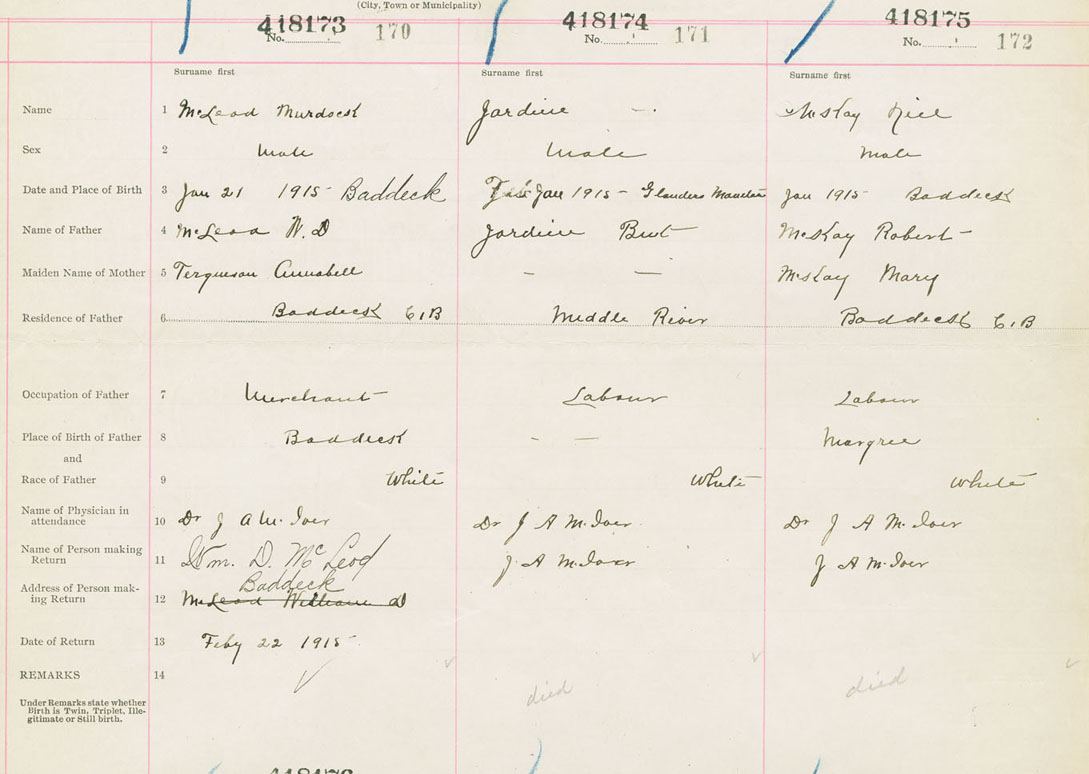 (City, Town or Municipality)
418173 418174 418175
No. 170 No. 171 No. 172
Surname first Surname first Surname first
Name 1 McLeod Murdock Jardine — McKay
Sex 2 Male Male Male
Date and Place of Birth 3 Jan 21 1915 Baddeck Jan 1915 - Jan 1915 Baddeck
Name of Father 4 McLeod W. D Jardine McKay Robert
Maiden Name of Mother 5 Ferguson Annabell — — McKay Mary
Residence of Father 6 Baddeck C,B Middle River Baddeck C,B
Occupation of Father 7 Merchant Labour Labour
Place of Birth of Father 8 Baddeck - — Margree
and
Race of Father 9 White White White
Name of Physician in
attendance 10 Dr J A McIver Dr J A McIver Dr J A McIver
Name of Person making
Return 11 Wm. D. McLeod J A McIver J A McIver
Baddeck
Address of Person mak-
ing Return 12 McLeod William D
Date of Return 13 Feby 22 1915
REMARKS 14 died died
Under Remarks state whether
Birth is Twin, Triplet, Ille-
gitimate or Still birth.